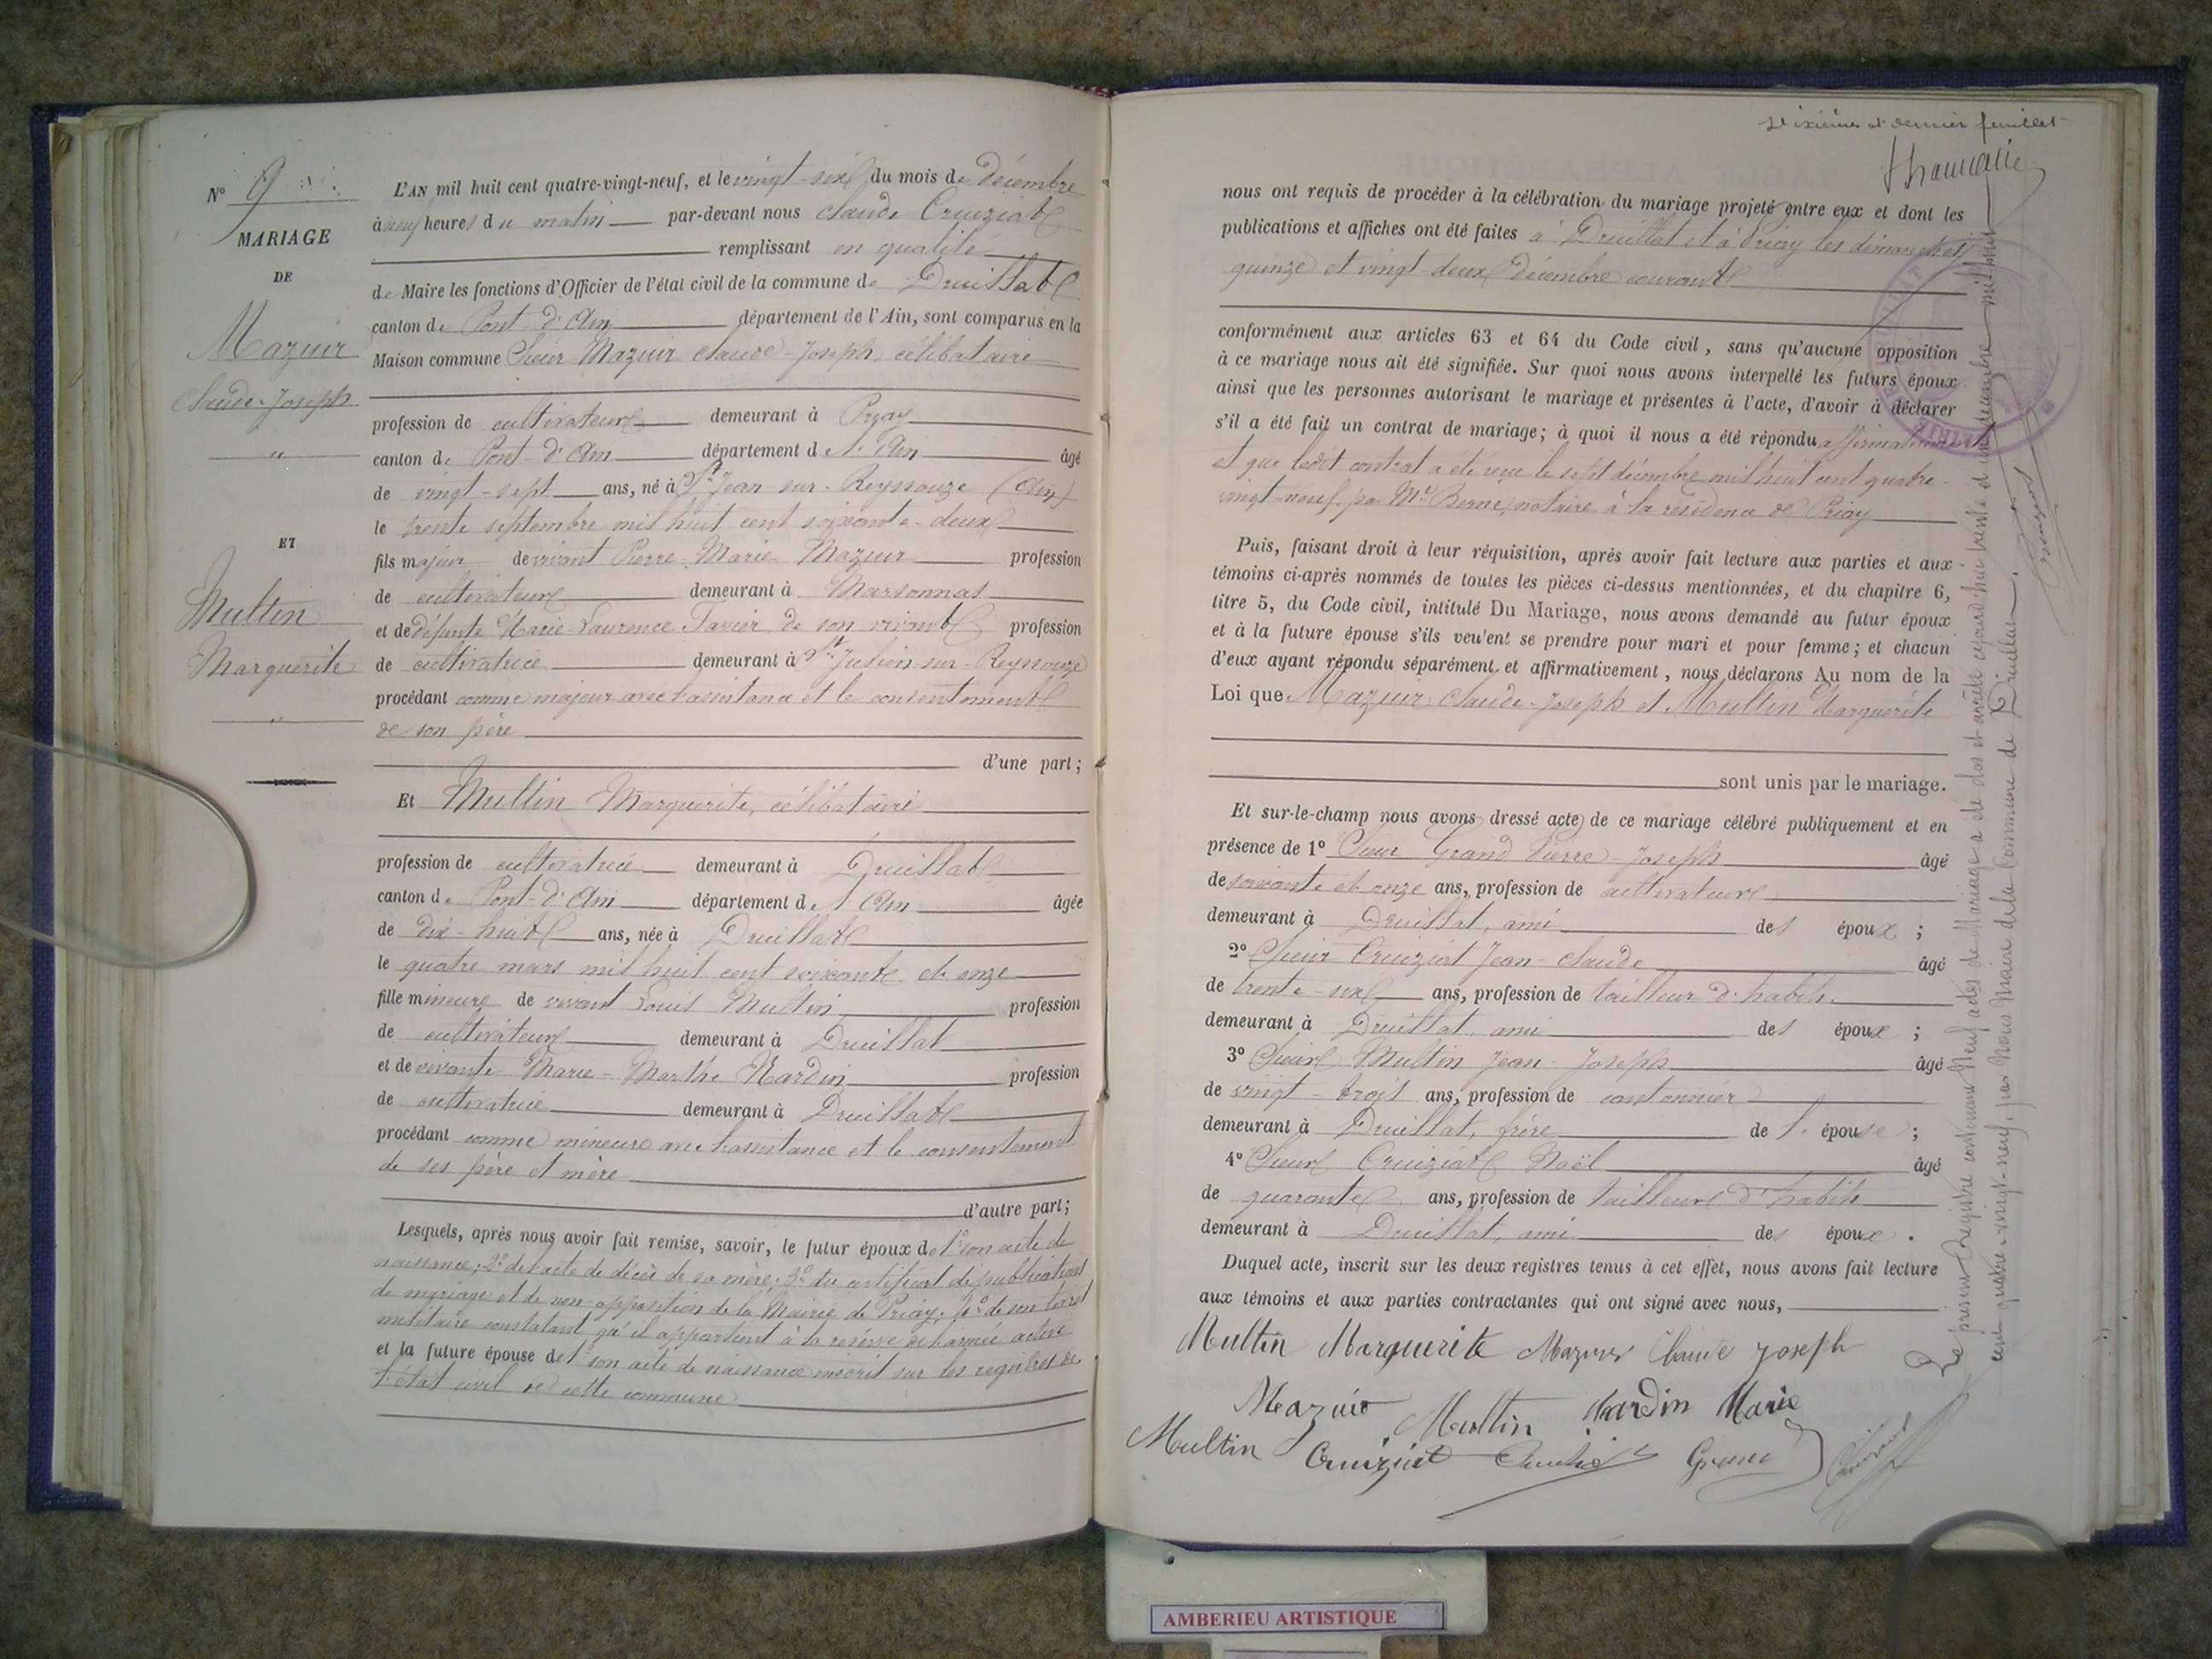 N° 9
MARIAGE
DE
Mazuir
Claude-Joseph
"
ET
Multin
Marguerite
"
L'AN mil huit cent quatre-vingt-neuf, et le vingt-six du mois de Décembre
à neuf heures du matin par-devant nous Claude Cruiziat
remplissant en qualité
de Maire les fonctions d'Officier de l'état civil de la commune de Druillat
canton de Pont-d'Ain département de l'Ain, sont comparus en la
Maison commune Sieur Mazuir Claude-Joseph, célibataire
profession de cultivateur demeurant à Priay
canton de Pont-d'Ain département de l'Ain âgé
de vingt-sept ans, né à St Jean-sur-Reyssouze (Ain)
le trente septembre mil huit cent soixante-deux
fils majeur de vivant Pierre-Marie Mazuir profession
de cultivateur demeurant à Marsonnas
et de défunte Marie-Laurence Favier de son vivant profession
de cultivatrice demeurant à St Julien-sur-Reyssouze
procédant comme majeur avec l'assistance et le consentement
de son père
d'une part;
Et Multin Marguerite, célibataire
profession de cultivatrice demeurant à Druillat
canton de Pont-d'Ain département de l'Ain âgée
de dix-huit ans, née à Druillat
le quatre mars mil huit cent soixante et onze
fille mineure de vivant Louis Multin profession
de cultivateur demeurant à Druillat
et de vivante Marie-Marthe Nardin profession
de cultivatrice demeurant à Druillat
procédant comme mineure avec l'assistance et le consentement
de ses père et mère
d'autre part;
Lesquels, après nous avoir fait remise, savoir, le futur époux de 1° son acte de
naissance; 2° de l'acte de décès de sa mère; 3° du certificat de publications
de mariage et de non-opposition de la Mairie de Priay; 4° de son livret
militaire constatant qu'il appartient à la réserve de l'armée active
et la future épouse de 1° son acte de naissance inscrit sur les registres de
l'état civil de cette commune
Dixième et dernier feuillet
nous ont requis de procéder à la célébration du mariage projeté entre eux et dont les
publications et affiches ont été faites à Druillat et à Priay les dimanches
quinze et vingt-deux Décembre courant
conformément aux articles 63 et 64 du Code civil, sans qu'aucune opposition
à ce mariage nous ait été signifiée. Sur quoi nous avons interpellé les futurs époux
ainsi que les personnes autorisant le mariage et présentes à l'acte, d'avoir à déclarer
s'il a été fait un contrat de mariage; à quoi il nous a été répondu affirmativement
et que ledit contrat a été reçu le sept décembre mil huit cent quatre-
vingt-neuf par Me Berne, notaire à la résidence de Priay
Puis, faisant droit à leur réquisition, après avoir fait lecture aux parties et aux
témoins ci-après nommés de toutes les pièces ci-dessus mentionnées, et du chapitre 6,
titre 5, du Code civil, intitulé Du Mariage, nous avons demandé au futur époux
et à la future épouse s'ils veulent se prendre pour mari et pour femme; et chacun
d'eux ayant répondu séparément et affirmativement, nous déclarons Au nom de la
Loi que Mazuir Claude-Joseph et Multin Marguerite
sont unis par le mariage.
Et sur-le-champ nous avons dressé acte de ce mariage célébré publiquement et en
présence de 1° Sieur Grand Pierre-Joseph âgé
de soixante et onze ans, profession de cultivateur
demeurant à Druillat, ami des époux;
2° Sieur Cruiziat Jean-Claude âgé
de trente-six ans, profession de tailleur d'habits
demeurant à Druillat, ami des époux;
3° Sieur Multin Jean-Joseph âgé
de vingt-trois ans, profession de cantonnier
demeurant à Druillat, frère de l'épouse;
4° Sieur Cruiziat Noël âgé
de quarante ans, profession de tailleur d'habits
demeurant à Druillat, ami des époux.
Duquel acte, inscrit sur les deux registres tenus à cet effet, nous avons fait lecture
aux témoins et aux parties contractantes qui ont signé avec nous,
Multin Marguerite Mazuir Claude Joseph
Mazuir Multin Nardin Marie
Multin Cruiziat Grand
Le présent Registre contenant Neuf actes de Mariage a été clos et arrêté cejourd'hui trente et un décembre mil huit
cent quatre-vingt-neuf, par Nous Maire de la Commune de Druillat.
AMBERIEU ARTISTIQUE